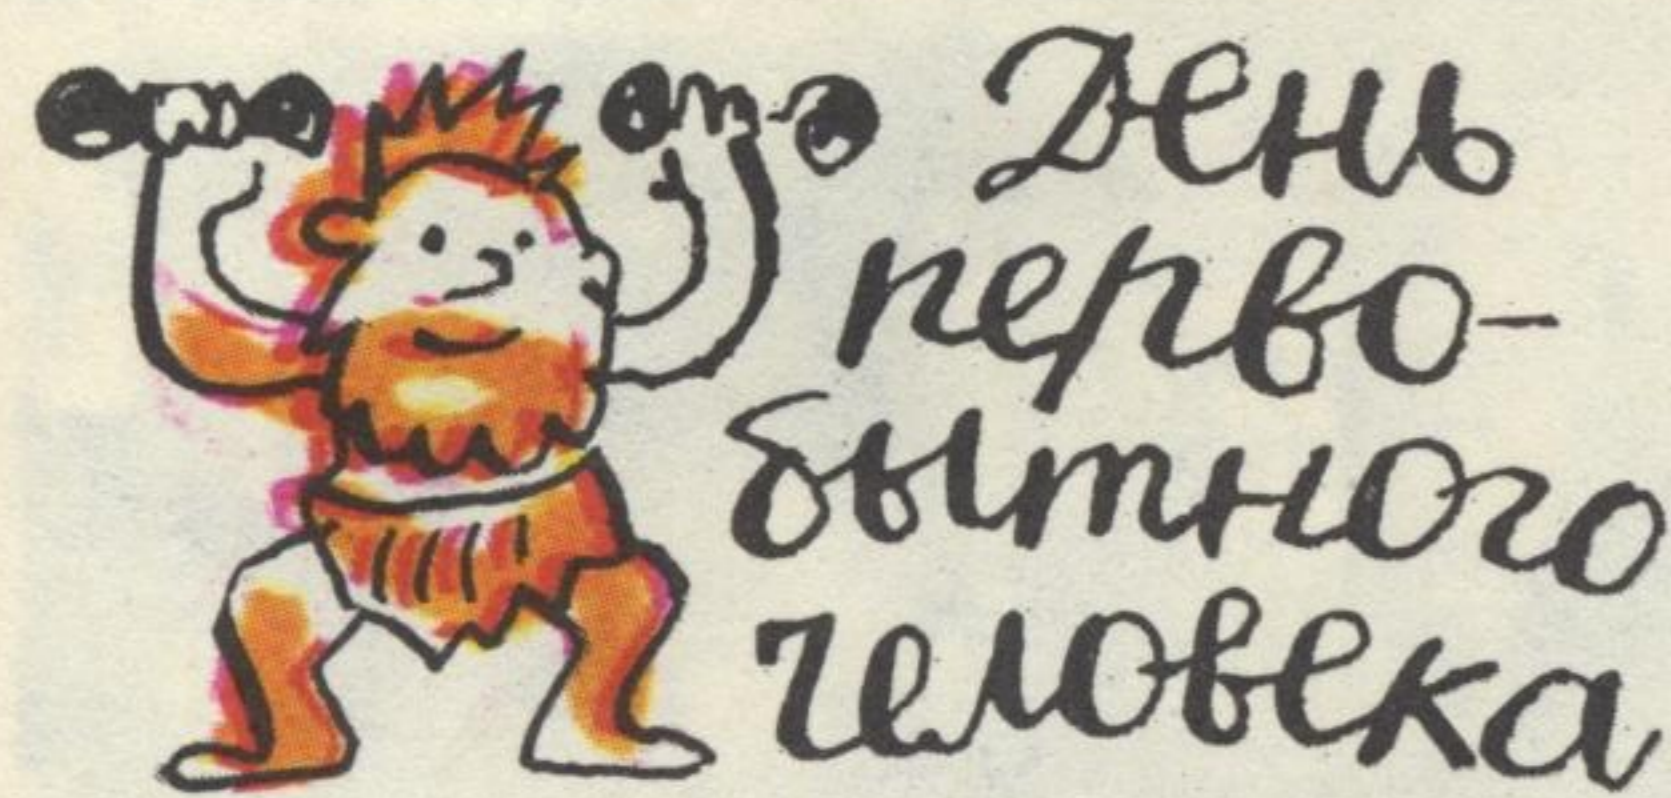 День
перво-
бытного
человека